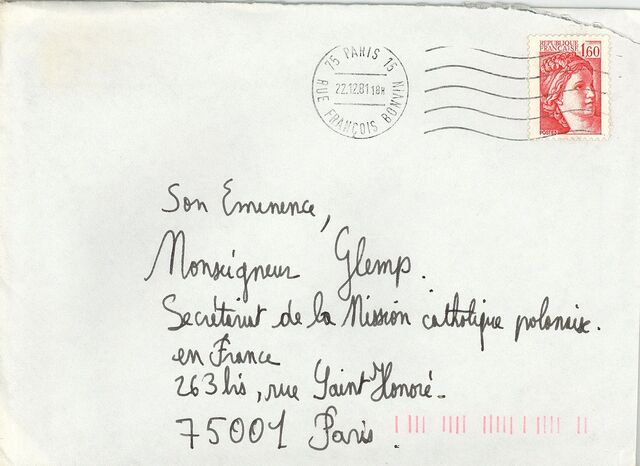 75 PARIS 15
22.12.81 18H
RUE FRANÇOIS BONVIN
REPUBLIQUE
FRANÇAISE
1,60
POSTES
Son Eminence,
Monseigneur Glemp.
Secrétariat de la Mission catholique polonaise.
en France
263 bis, rue Saint Honoré.
75001 Paris.